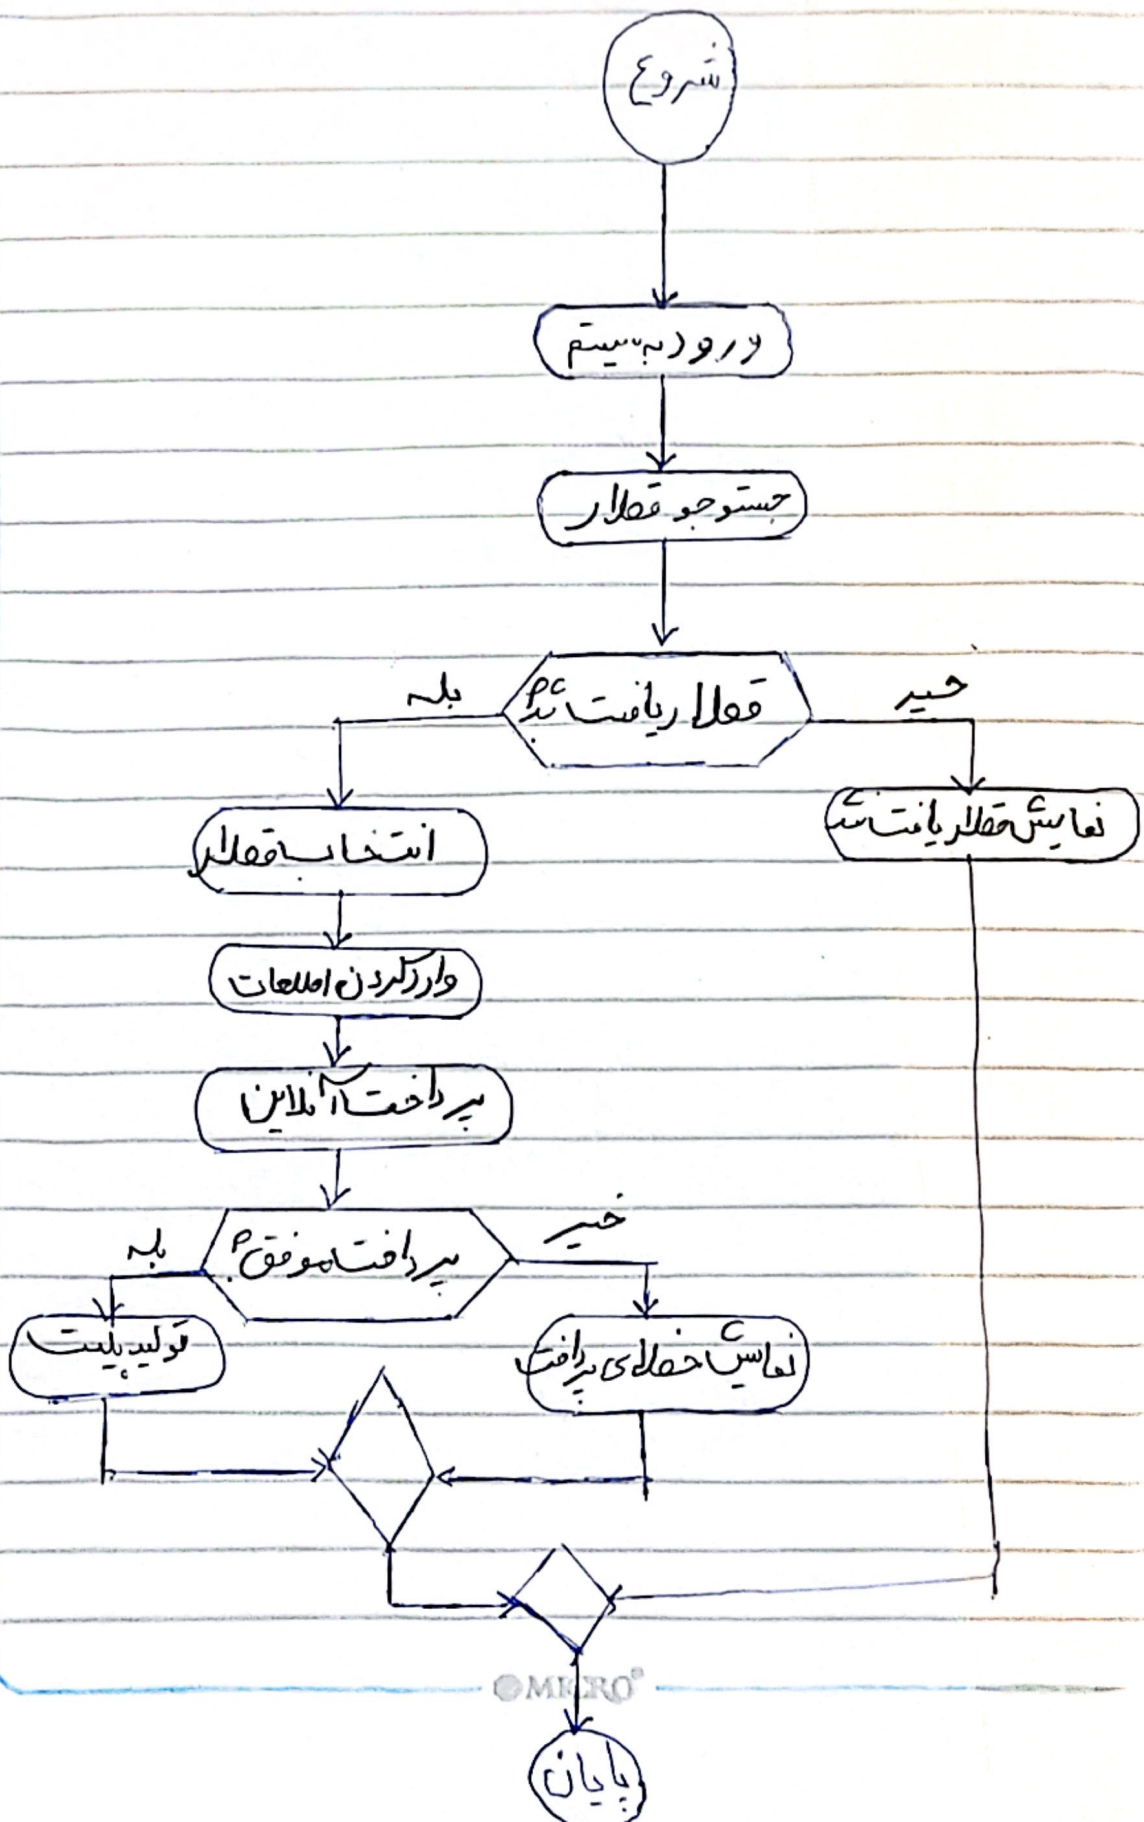 شروع
ورود به سیستم
جستوجو قطار
قطار یافت شد؟
بله
خیر
انتخاب قطار
نمایش قطار یافت نشد
وارد کردن اطلاعات
پرداخت آنلاین
پرداخت موفق؟
بله
خیر
تولید بلیت
نمایش خطای پرداخت
پایان